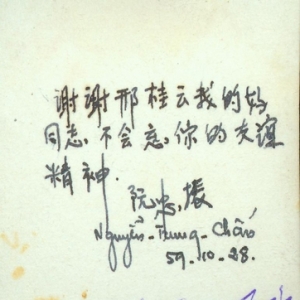 谢谢邢桂云我的好
同志,不会忘你的友谊
精神.
阮忠振
Nguyễn-Trung-Chấn
59-10-28.